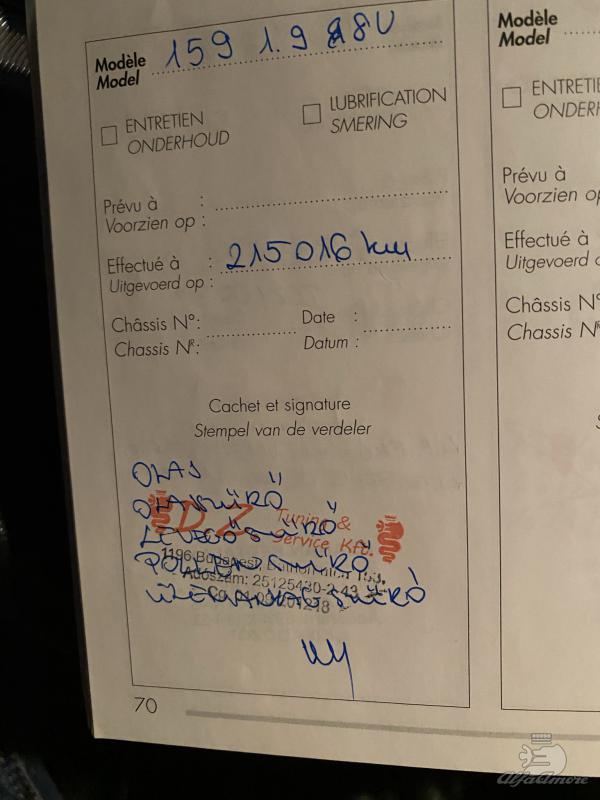 Modèle
Model 159 1.9 88U
ENTRETIEN
ONDERHOUD
LUBRIFICATION
SMERING
Prévu à :
Voorzien op :
Effectué à : 215 016 km
Uitgevoerd op :
Châssis N°:
Chassis Nr:
Date :
Datum :
Cachet et signature
Stempel van de verdeler
OLAJ
OLAJSZŰRŐ
LEVEGŐSZŰRŐ
POLLENSZŰRŐ
ÜZEMANYAGSZŰRŐ
DZ Tuning &
Service Kft.
1196 Budapest,
Adószám: 25125430-2-43
70
Modèle
Model
ENTRETIE
ONDERH
Prévu à
Voorzien op
Effectué à
Uitgevoerd o
Châssis N°
Chassis N
AlfaAmore